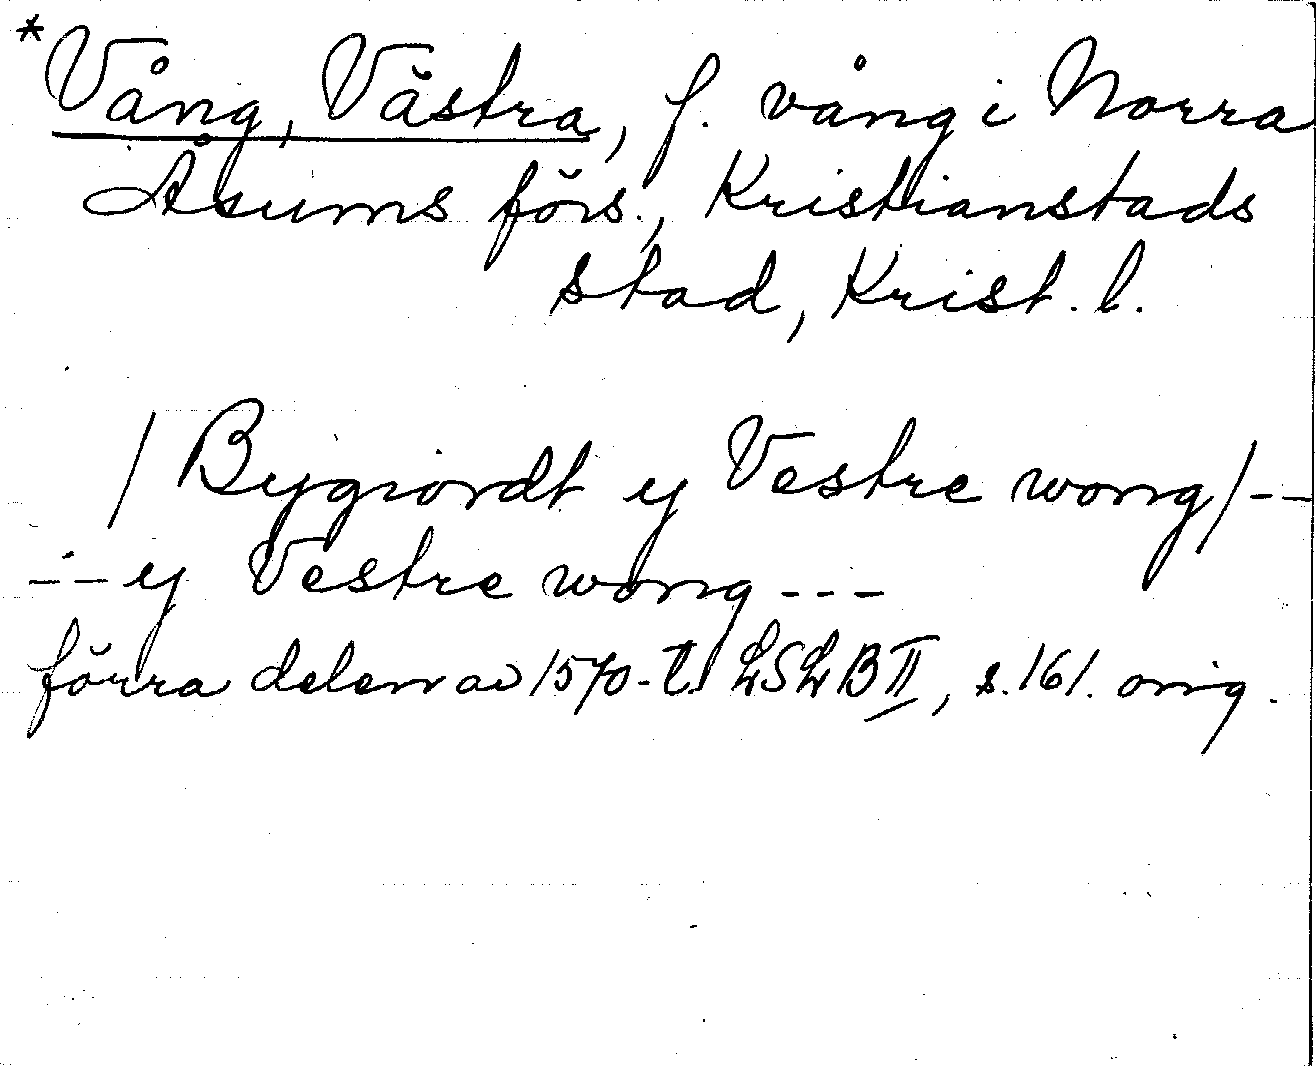 *Vång, Västra, f. vång i Norra
Åsums förs., Kristianstads
stad, Krist. l.
/ Bygiordt y Vestre wong/--
--- y Vestre wong ---
förra delen av 1570-t. LSLB II, s. 161. orig.